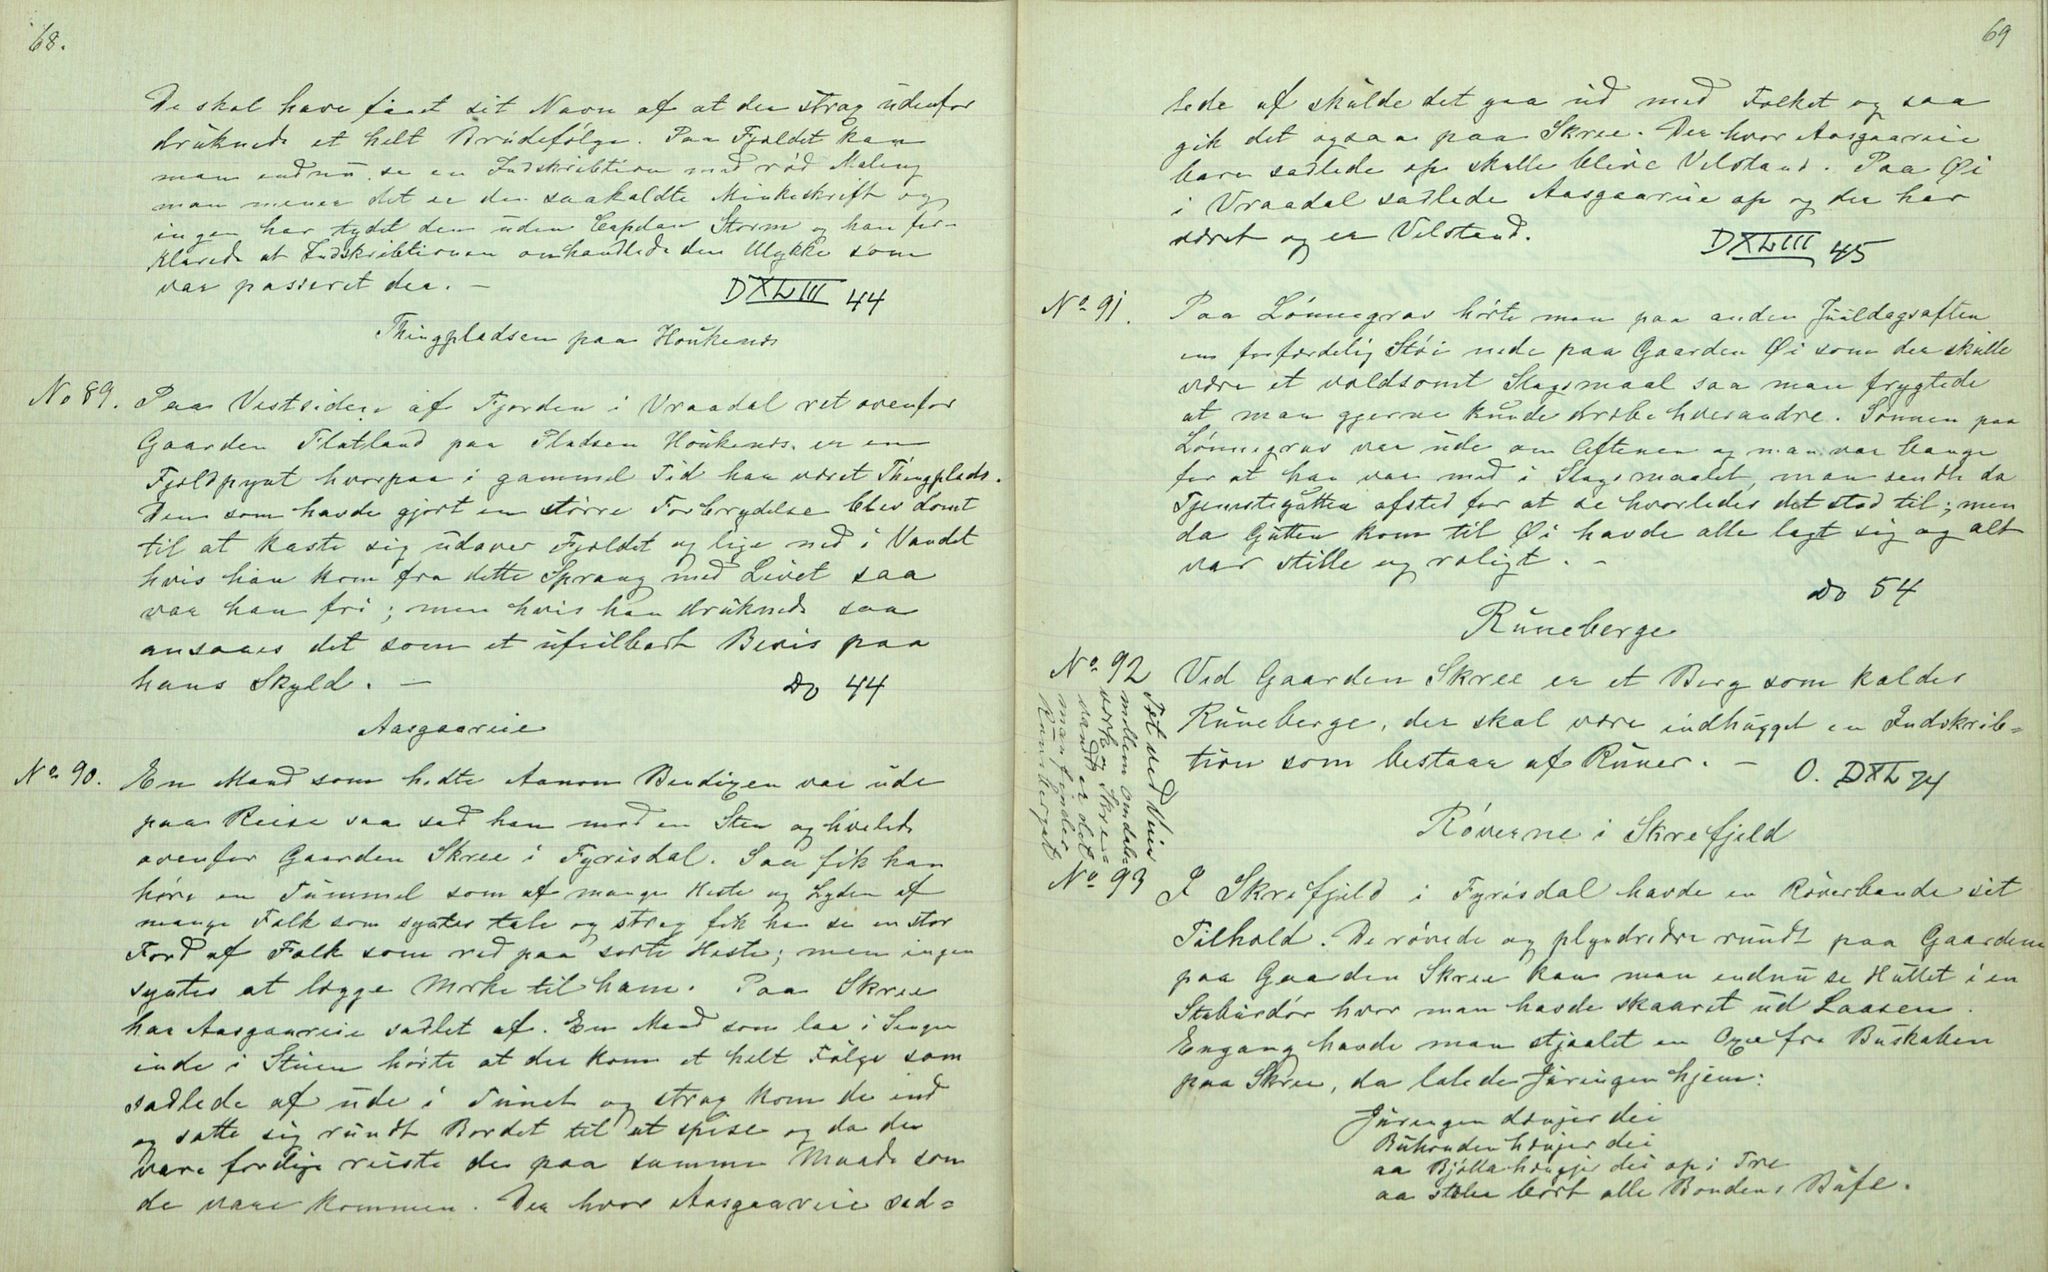 68.
De skal have faaet sit Navn af at der strax udenfor
druknede et helt Brudefølge. Paa Fjeldet kan
man endnu se en Indskribtion med rød Maling
man mener det er den saakaldte Munkeskrift og
ingen har tydet den uden Capelan Storm og han for-
klarede at Indskribtionen omhandlede den Ulykke som
var passeret der. —
DXLIII 44
Thingpladsen paa Houkenes
No 89. Paa Vestsiden af Fjorden i Vraadal ret ovenfor
Gaarden Flatland paa Pladsen Houkenes er en
Fjeldpynt hvorpaa i gammel Tid har været Thingplads.
Den som havde gjort en större Forbrydelse blev dömt
til at kaste sig udover Fjeldet og lige ned i Vandet
hvis han kom fra dette Sprang med Livet saa
var han fri; men hvis han druknede saa
ansaaes det som et ufeilbart Bevis paa
hans Skyld. —
Do 44
Aasgaareie
No 90. En Mand som hedte Aanon Bendixen var ude
paa Reise saa sad han med en Sten og hvilede
ovenfor Gaarden Skree i Fyrisdal. Saa fik han
høre en Tummel som af mange Heste og Lyden af
mange Folk som syntes tale og strax fik han se en stor
Ford af Folk som red paa sorte Heste; men ingen
syntes at lægge Mærke til ham. Paa Skree
har Aasgaareie sadlet af. En Mand som laa i Sengen
inde i Stuen hørte at der kom et helt Følge som
sadlede af ude i Tunet og strax kom de ind
og satte sig rundt Bordet til at spise og da de
vare ferdige reiste de paa samme Maade som
de vare kommen. Der hvor Aasgaareie sad=
69
lede af skulde det gaa ud med Folket og saa
gik det ogsaa paa Skree. Der hvor Aasgaareie
bare sadlede op skulle blive Velstand. Paa Øi
i Vraadal sadlede Aasgaareie op og der har
været og er Velstand.
DXLIII 45
No 91. Paa Lönnegrav hörte man paa anden Juuldagsaften
en forfærdelig Støi nede paa Gaarden Øi som der skulle
være et voldsomt Slagsmaal saa man frygtede
at man gjerne kunde dræbe hverandre. Sønnen paa
Lönnegrav var ude om Aftenen og man var bange
for at han var med i Slagsmaalet, man sendte da
Tjenestegutten afsted for at se hvorledes det stod til; men
da Gutten kom til Øi havde alle lagt sig og alt
var stille og roligt. —
Do 54
Runeberge
No 92 Ved Gaarden Skree er et Berg som kaldes
Runeberge, der skal være indhugget en Indskrib=
tion som bestaar af Runer. —
O. DXL 74
Tæt ved Veien
mellem Omdals=
verk og Skree=
vandt er det
man finder
Runeberget
Røverne i Skrefjeld
No 93 I Skrefjeld i Fyrisdal havde en Røverbande sit
Tilhold. De røvede og plyndredre rundt paa Gaardene
paa Gaarden Skree kan man endnu se Hullet i en
Stabursdør hvor man havde skaaret ud Laasen.
Engang havde man stjaalet en Oxe fra Buskaben
paa Skree, da lalede Juringen hjem:
Juringen dængjer dei
Buhonden hængjer dei
aa Bjölla hængjer dei op i Tre
aa steler bort alle Bondens Bufe.